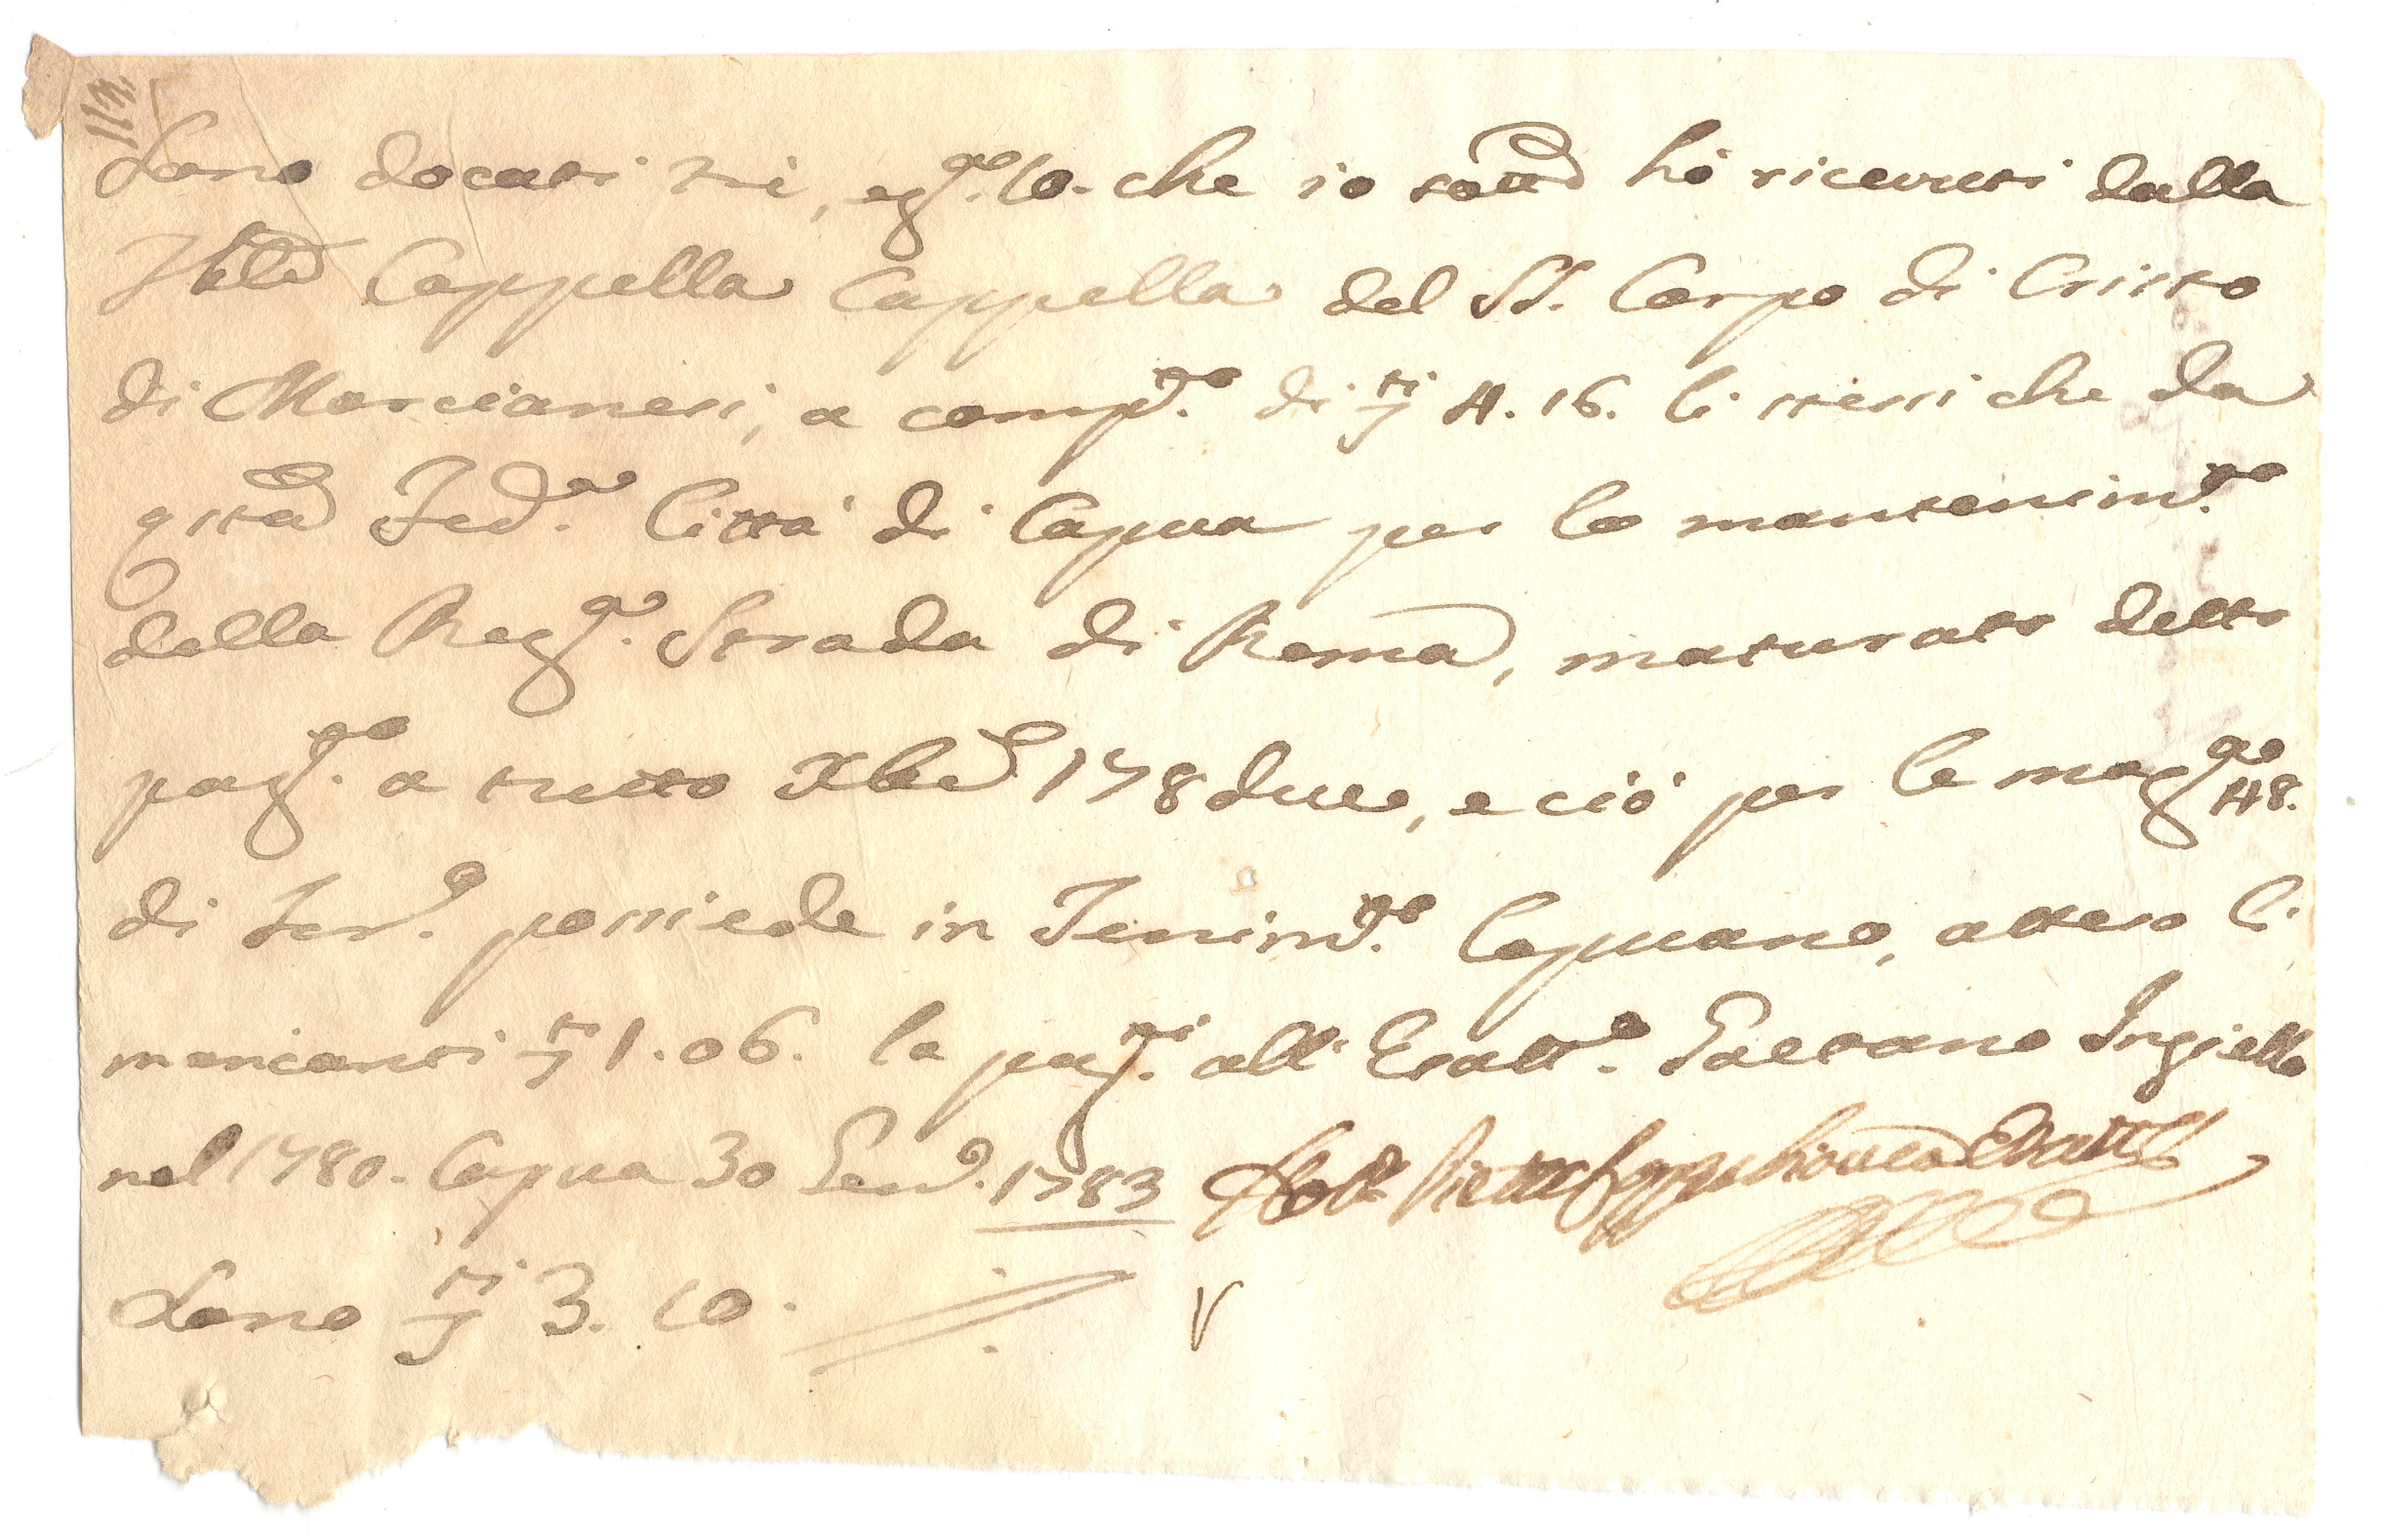 112
Sono docati trè, e g.na 10. che io sott.o hò ricevuti dalla
Ven.le Cappella Cappella del SS. Corpo di Cristo
di Marcianesi, a comp.to di d.ti 4. 16. li stessi che da
q.sta Fed.ma Città di Capua per lo mantenim.to
della Reg.a Strada di Roma, maturato detto
pag.to a tutto Xbre 178due, e ciò per le mog.a 48.
di Ter.e possiede in Tenim.to Capuano, atteso li
mancanti d.ti 1.06. la pag.ti all' Esatt.e Gaetano Ingiello
nel 1780. Capua 30 Gen.o 1783
Sono d.ti 3. 10.